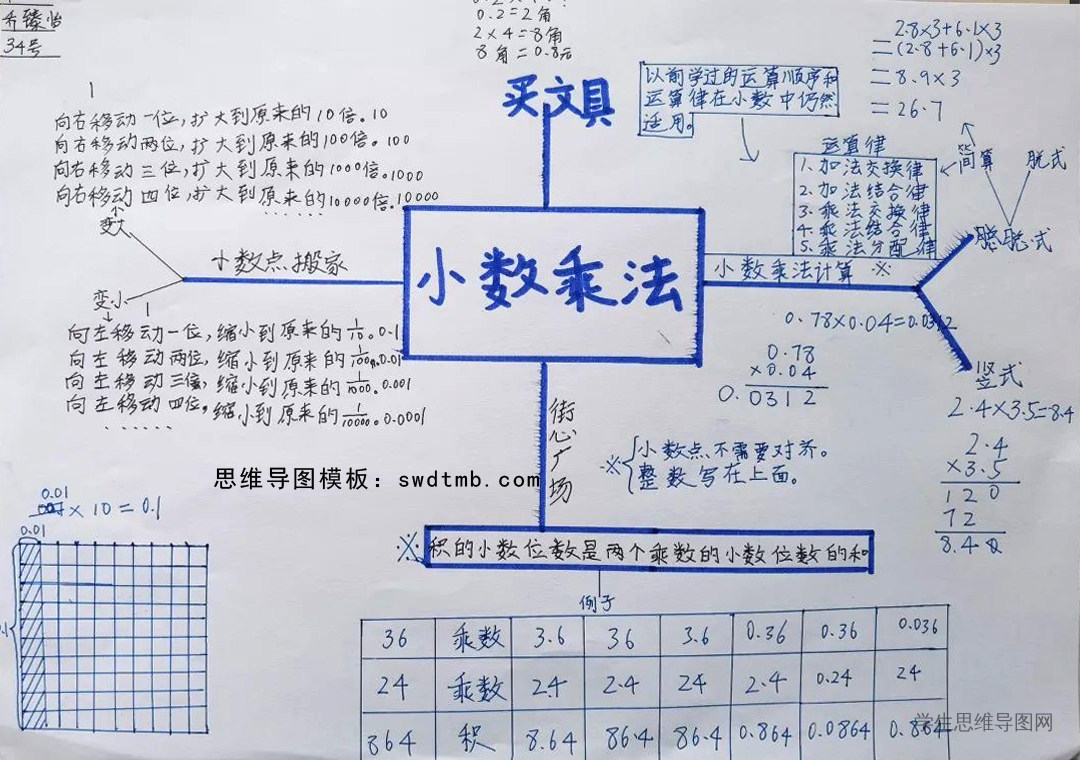 乔臻怡
34号
0.2=2角
2×4=8角
8角=0.8元
买文具
2.8×3+6.1×3
=(2.8+6.1)×3
=8.9×3
=26.7
以前学过的运算顺序和
运算律在小数中仍然
适用。
运算律
1.加法交换律
2.加法结合律
3.乘法交换律
4.乘法结合律
5.乘法分配律
简算
脱式
向右移动一位,扩大到原来的10倍。10
向右移动两位,扩大到原来的100倍。100
向右移动三位,扩大到原来的1000倍。1000
向右移动四位,扩大到原来的10000倍。10000
......
变大
小数点搬家
变小
向左移动一位,缩小到原来的1/10。0.1
向左移动两位,缩小到原来的1/100。0.01
向左移动三倍,缩小到原来的1/1000。0.001
向左移动四位,缩小到原来的1/10000。0.0001
......
小数乘法
小数乘法计算 ※
式
0.78×0.04=0.0312
0.78
×0.04
0.0312
竖式
2.4×3.5=8.4
2.4
×3.5
120
72
8.40
街心广场
※{小数点不需要对齐。
整数写在上面。
思维导图模板：swdtmb.com
0.01
×10=0.1
0.01
※ 积的小数位数是两个乘数的小数位数的和
例子
36 乘数 3.6 36 3.6 0.36 0.36 0.036
24 乘数 2.4 2.4 24 2.4 0.24 24
864 积 8.64 86.4 86.4 0.864 0.0864 0.864
学生思维导图网